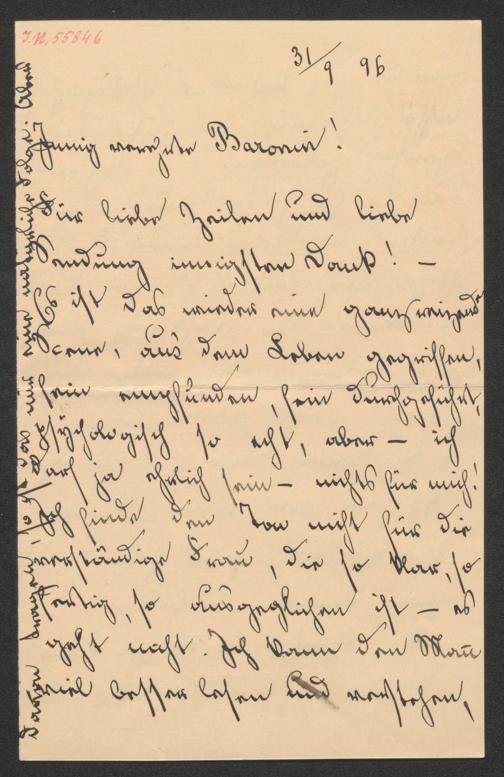 I.N. 55846
31/9 96
Innig verehrte Baronin!
Für liebe Zeilen und liebe
Sendung innigsten Dank! —
Es ist das wieder eine ganz reizende
Scene, aus dem Leben gegriffen,
fein empfunden, fein durchgeführt,
psychologisch so echt, aber — ich
darf ja ehrlich sein — nichts für mich!
Ich finde den Ton nicht für die
verständige Frau, die so klar, so
fertig, so ausgeglichen ist — es
geht nicht. Ich kann den Mann
viel besser lesen und verstehen,
davon so das nur eine natürliche Folge. Aber